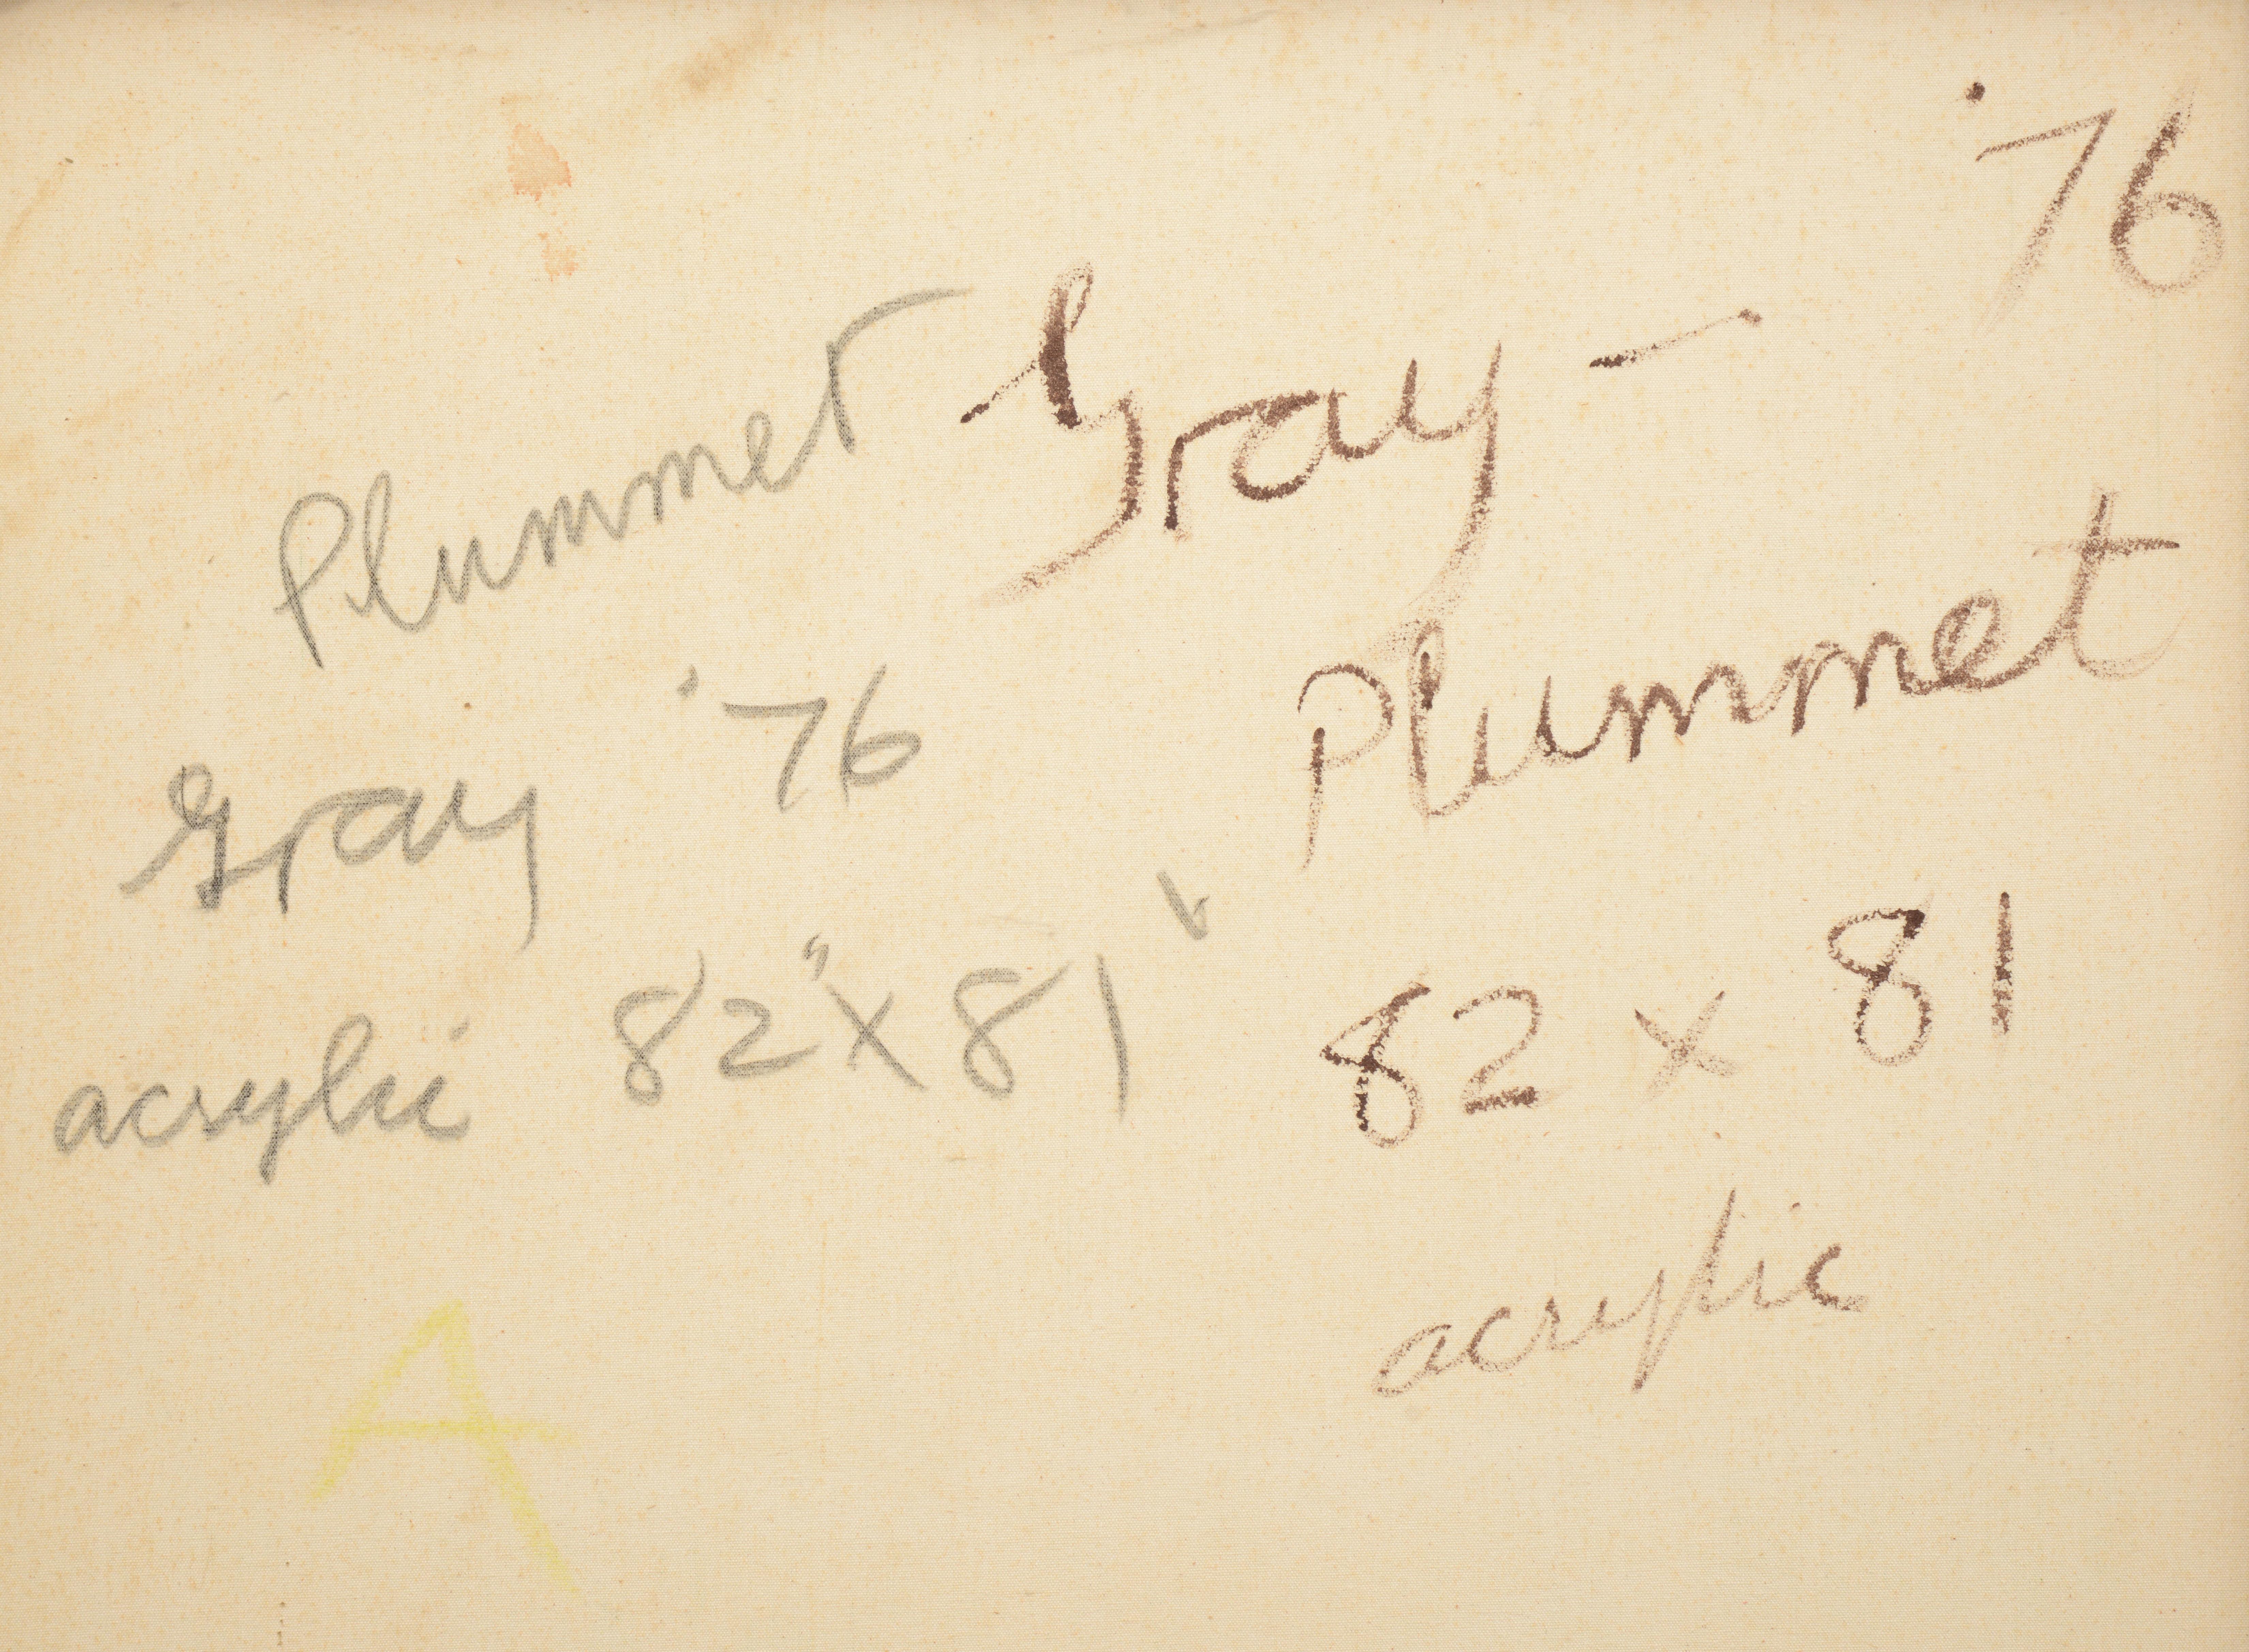 Plummet
Gray '76
acrylic 82" x 81"
A
Gray – '76
Plummet
82 x 81
acrylic